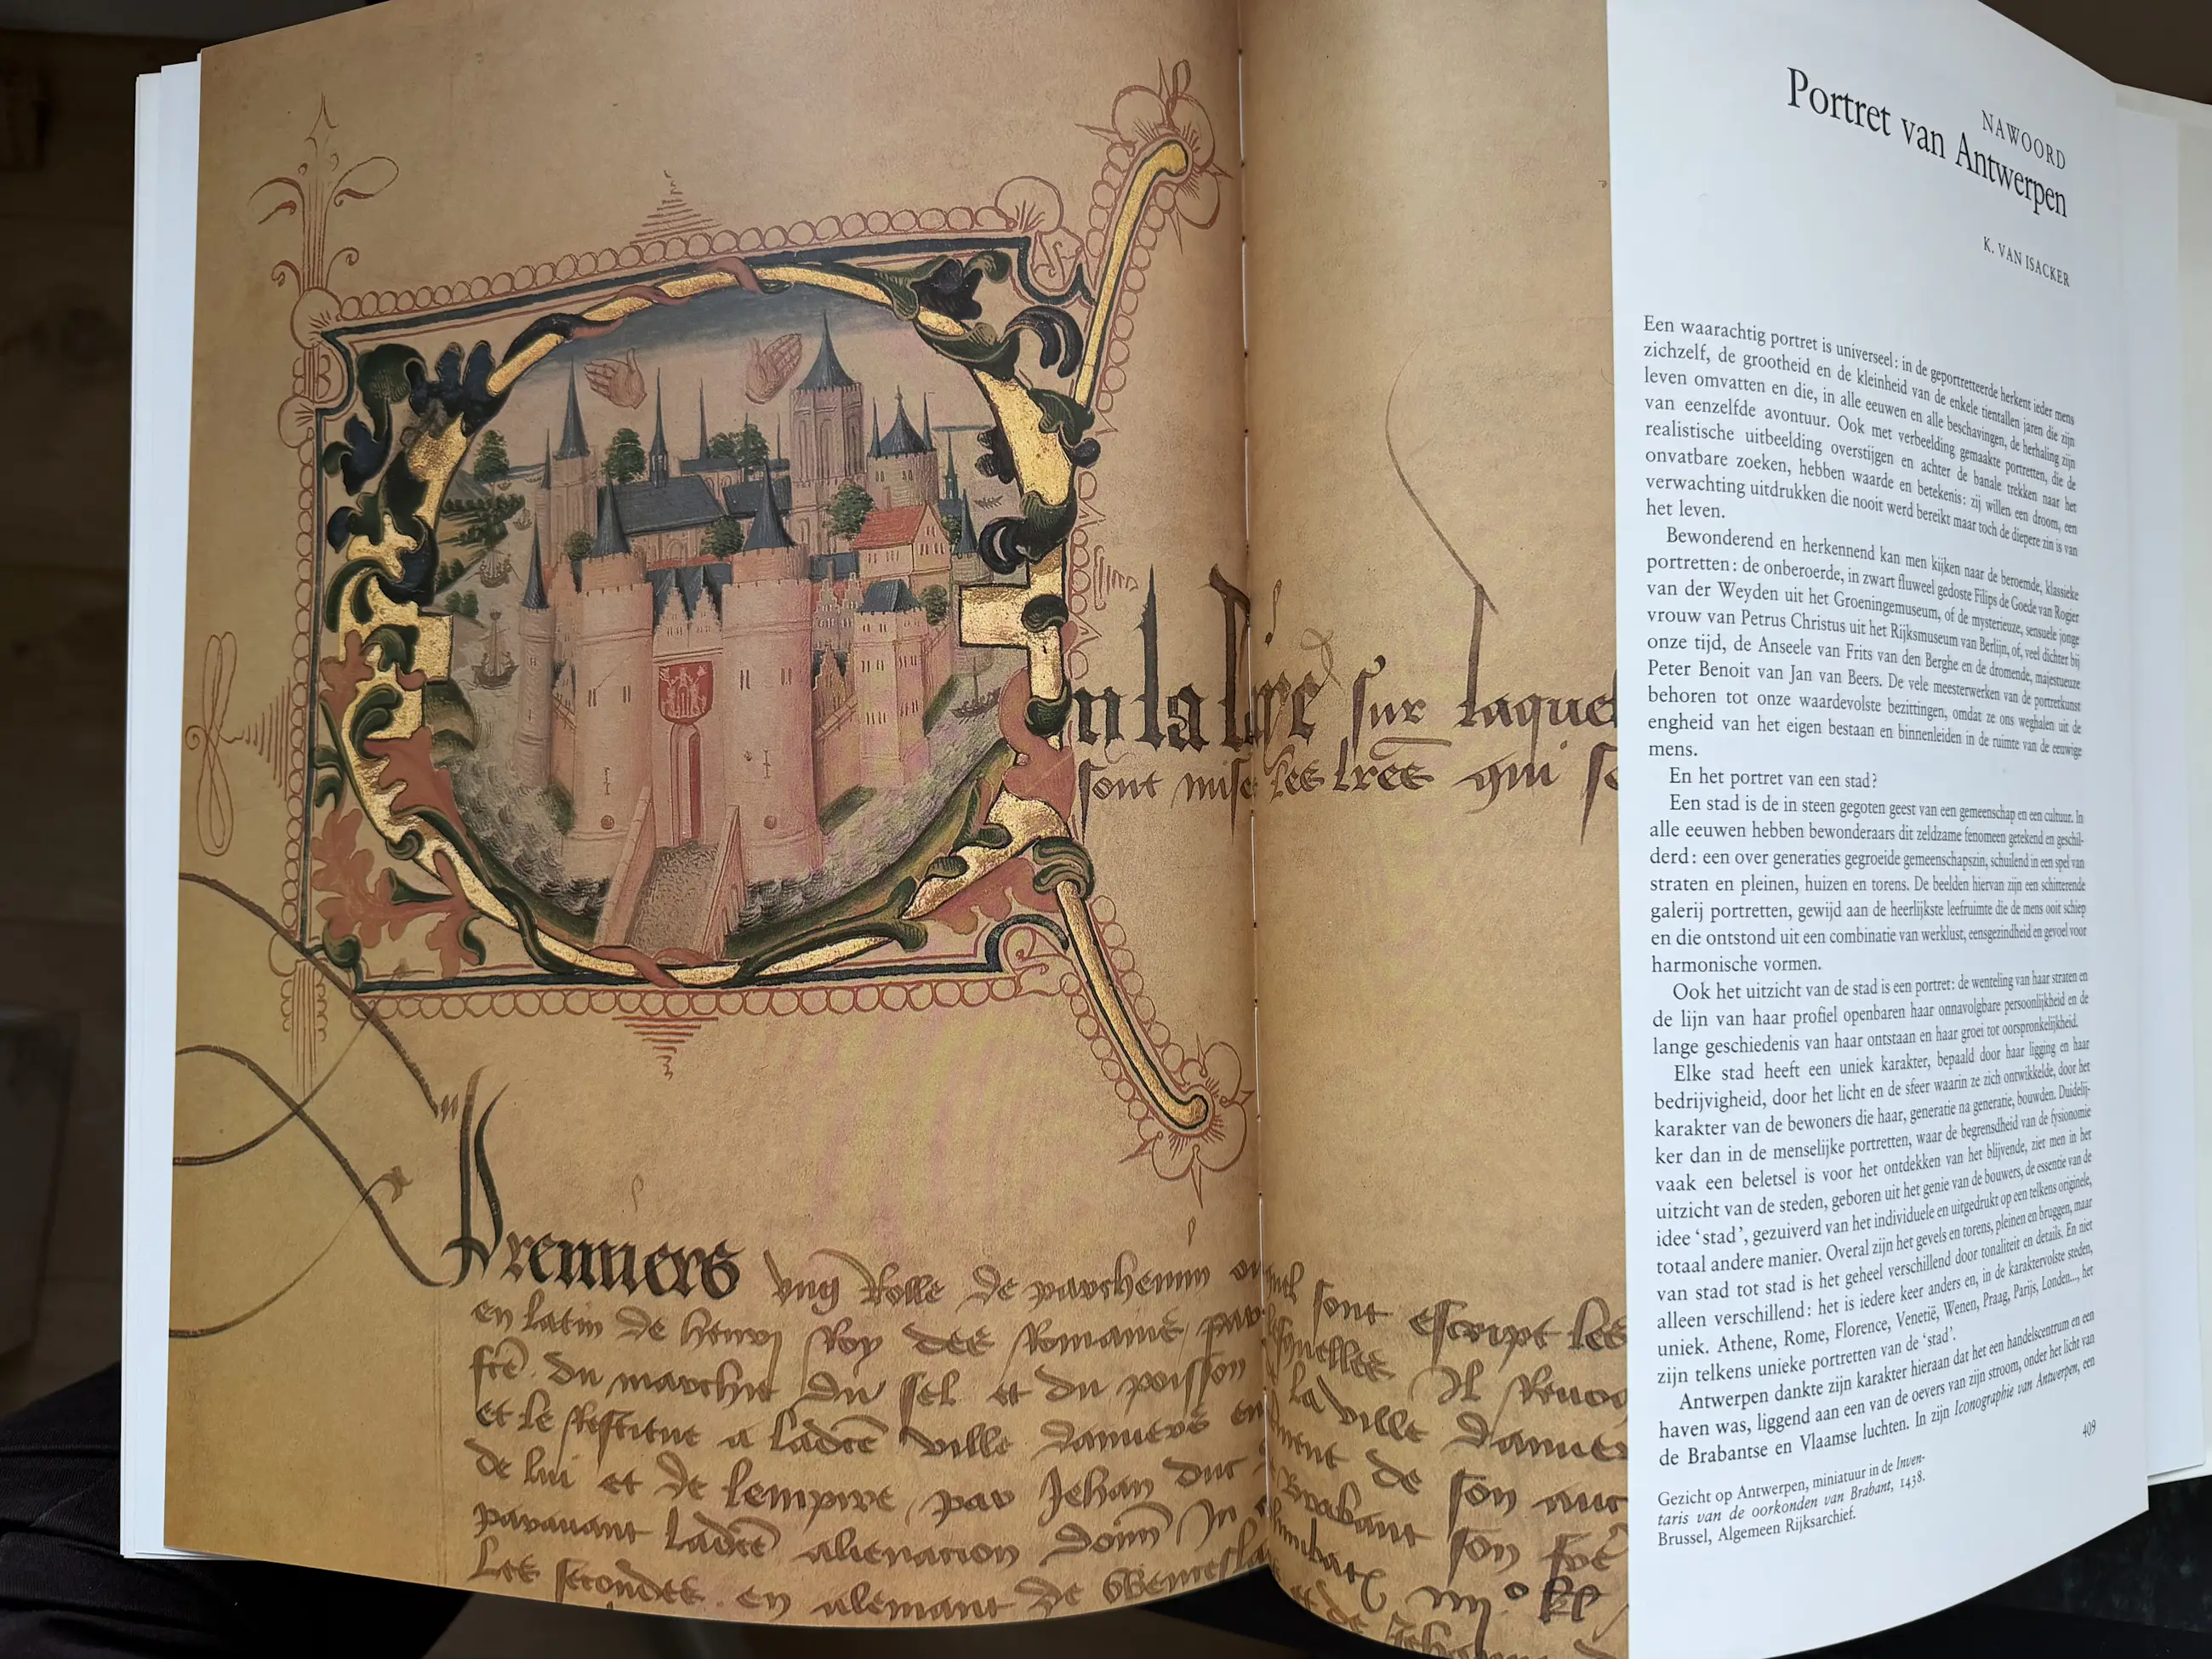 n la laye sur laquel
sont mises les lres qui so
Premiers ung Rolle de parchemin ou quel sont escript les
en latin de henry Roy des Romains par lesquelles Il
frē du marchie du sel et du poisson la ville
et le Restitue a ladce ville danvers en de son
de lui et de lempire par Jehan duc Brabant son
paravant ladce alienacion donn In
Les secondes en alemant de et de Jeh
NAWOORD
Portret van Antwerpen
K. VAN ISACKER
Een waarachtig portret is universeel: in de geportretteerde herkent ieder mens
zichzelf, de grootheid en de kleinheid van de enkele tientallen jaren die zijn
leven omvatten en die, in alle eeuwen en alle beschavingen, de herhaling zijn
van eenzelfde avontuur. Ook met verbeelding gemaakte portretten, die de
realistische uitbeelding overstijgen en achter de banale trekken naar het
onvatbare zoeken, hebben waarde en betekenis: zij willen een droom, een
verwachting uitdrukken die nooit werd bereikt maar toch de diepere zin is van
het leven.
Bewonderend en herkennend kan men kijken naar de beroemde, klassieke
portretten: de onberoerde, in zwart fluweel gedoste Filips de Goede van Rogier
van der Weyden uit het Groeningemuseum, of de mysterieuze, sensuele jonge
vrouw van Petrus Christus uit het Rijksmuseum van Berlijn, of, veel dichter bij
onze tijd, de Anseele van Frits van den Berghe en de dromende, majestueuze
Peter Benoit van Jan van Beers. De vele meesterwerken van de portretkunst
behoren tot onze waardevolste bezittingen, omdat ze ons weghalen uit de
engheid van het eigen bestaan en binnenleiden in de ruimte van de eeuwige
mens.
En het portret van een stad?
Een stad is de in steen gegoten geest van een gemeenschap en een cultuur. In
alle eeuwen hebben bewonderaars dit zeldzame fenomeen getekend en geschil-
derd: een over generaties gegroeide gemeenschapszin, schuilend in een spel van
straten en pleinen, huizen en torens. De beelden hiervan zijn een schitterende
galerij portretten, gewijd aan de heerlijkste leefruimte die de mens ooit schiep
en die ontstond uit een combinatie van werklust, eensgezindheid en gevoel voor
harmonische vormen.
Ook het uitzicht van de stad is een portret: de wenteling van haar straten en
de lijn van haar profiel openbaren haar onnavolgbare persoonlijkheid en de
lange geschiedenis van haar ontstaan en haar groei tot oorspronkelijkheid.
Elke stad heeft een uniek karakter, bepaald door haar ligging en haar
bedrijvigheid, door het licht en de sfeer waarin ze zich ontwikkelde, door het
karakter van de bewoners die haar, generatie na generatie, bouwden. Duidelij-
ker dan in de menselijke portretten, waar de begrensdheid van de fysionomie
vaak een beletsel is voor het ontdekken van het blijvende, ziet men in het
uitzicht van de steden, geboren uit het genie van de bouwers, de essentie van de
idee ‘stad’, gezuiverd van het individuele en uitgedrukt op een telkens originele,
totaal andere manier. Overal zijn het gevels en torens, pleinen en bruggen, maar
van stad tot stad is het geheel verschillend door tonaliteit en details. En niet
alleen verschillend: het is iedere keer anders en, in de karaktervolste steden,
uniek. Athene, Rome, Florence, Venetië, Wenen, Praag, Parijs, Londen..., het
zijn telkens unieke portretten van de ‘stad’.
Antwerpen dankte zijn karakter hieraan dat het een handelscentrum en een
haven was, liggend aan een van de oevers van zijn stroom, onder het licht van
de Brabantse en Vlaamse luchten. In zijn Iconographie van Antwerpen, een
409
Gezicht op Antwerpen, miniatuur in de Inven-
taris van de oorkonden van Brabant, 1438.
Brussel, Algemeen Rijksarchief.